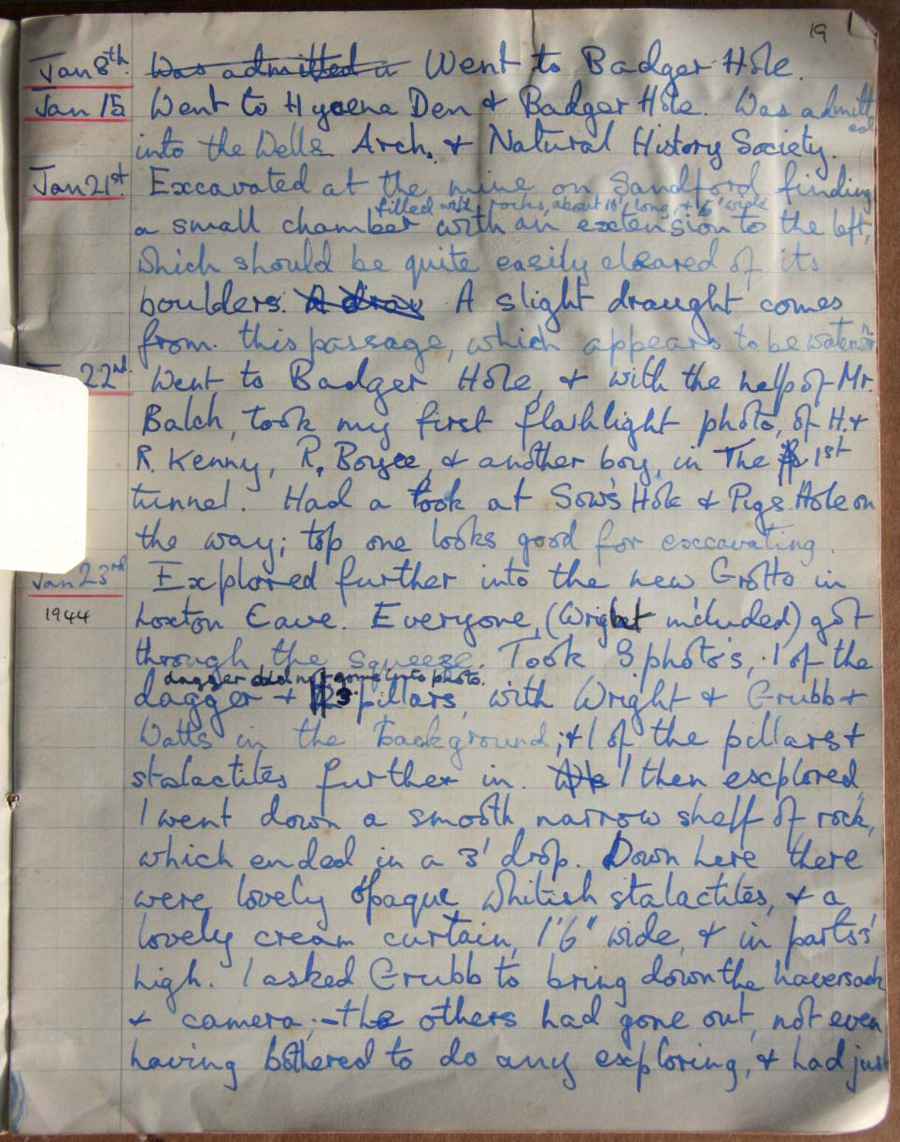 19
Jan 8th Was admitted Went to Badger Hole.
Jan 15 Went to Hyaena Den & Badger Hole. Was admitted
into the Wells Arch. & Natural History Society.
Jan 21st Excavated at the mine on Sandford finding
filled with rocks, about 18' long, & 6' wide
a small chamber with an extension to the left,
which should be quite easily cleared of its
boulders. A drav A slight draught comes
from this passage, which appears to be waterwn
22nd Went to Badger Hole, & with the help of Mr.
Balch, took my first flashlight photo, of H. &
R. Kenny, R. Boyce, & another boy, in The 1st
tunnel. Had a look at Sow's Hole & Pigs Hole on
the way; top one looks good for exccavating.
Jan 23rd Explored further into the new Grotto in
1944 Loxton Cave. Everyone, (Wright included) got
through the squeeze. Took 3 photo's, 1 of the
dagger did not come into photo.
dagger & 3 pillars, with Wright & Grubb &
Watts in the background; & 1 of the pillars &
stalactites further in. I then explored,
I went down a smooth narrow shelf of rock,
which ended in a 3' drop. Down here there
were lovely opaque whitish stalactites, & a
lovely cream curtain, 1'6" wide, & in parts 3'
high. I asked Grubb to bring down the haversack
& camera; - the others had gone out, not even
having bothered to do any exploring, & had just